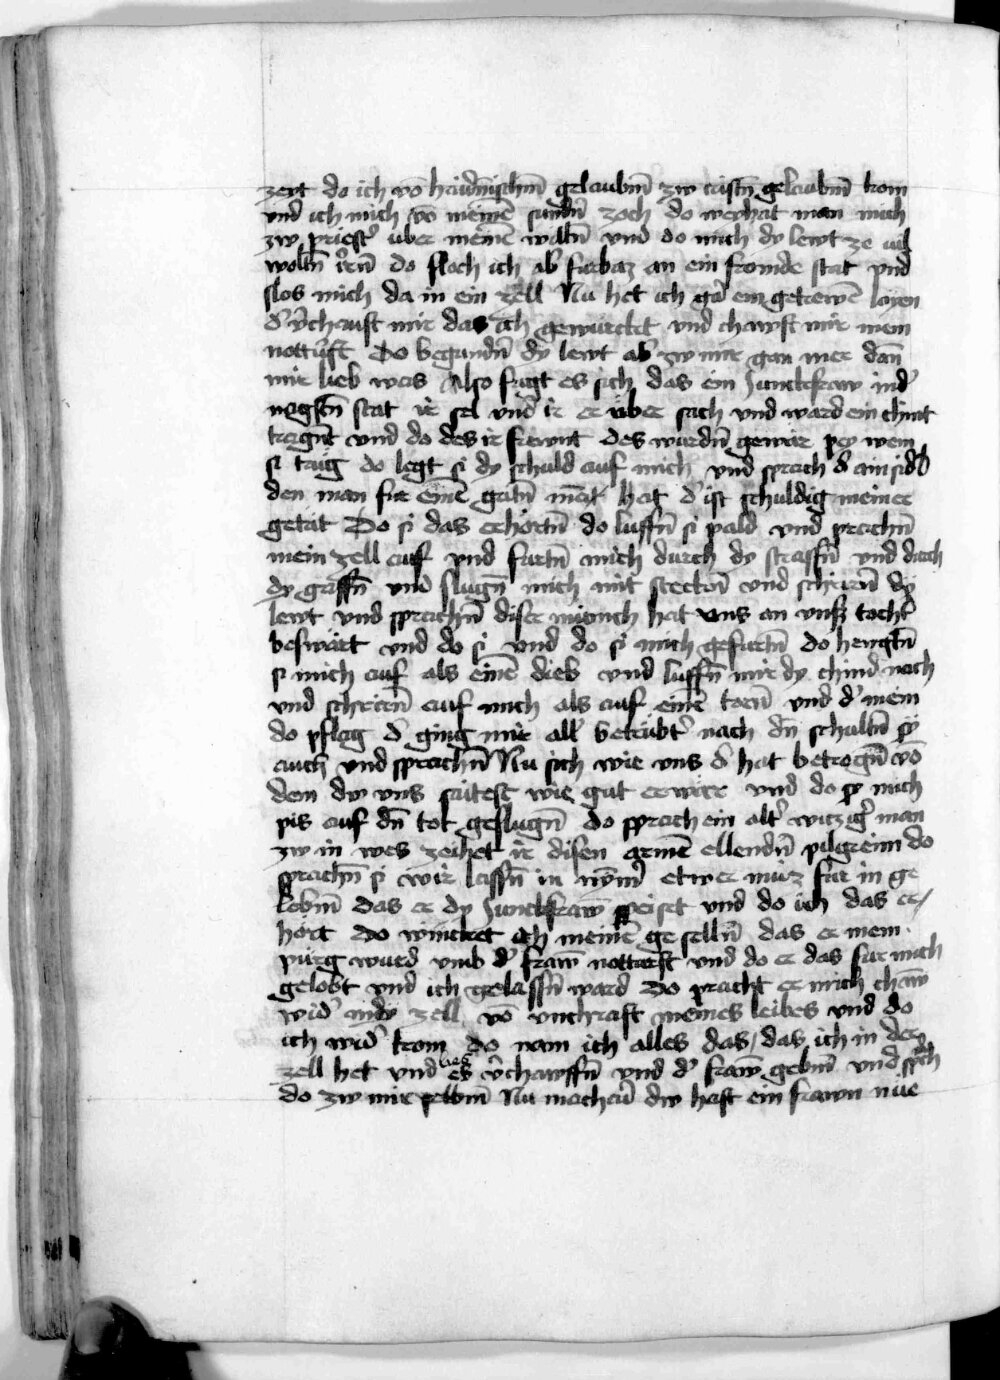 zeyt do ich vō haidnischn̄ gelaubm̄ zw cristn̄ gelaubm̄ kom
vnd ich mich vō meinē sundn̄ zoch do weyhat man mich
zw priestˀ uber meinē willn̄ vnd do mich dy lewt ze vil
woltn̄ irrn̄ do floch ich abˀ furbaz an ein fromde stat vnd
slos mich da in ein zell Nu het ich gar ein getrewē layen
dˀ vˀchauft mir das ich gewurckt vnd chawft mir mein
notturft Do begundn̄ dy lewt abˀ zw mir gan mer dan̄
mir lieb was Also fugt es sich das ein Junckfraw in dˀ
nagstn̄ stat ir sel vnd ir er uber sach vnd ward ein chint
tragn̄t vnd do des ir frewnt des wurdn̄ gewar pey wem
si trug do legt si dy schuld auf mich vnd sprach dˀ ainsidˀl
den man fur einē gutn̄ man hat dˀ ist schuldig meiner
getat Do si das erhortn̄ do luffn̄ si pald vnd prachn̄
mein zell auf vnd furtn̄ mich durch dy strassn̄ vnd durch
dy gassn̄ vnd slugn̄ mich mit steckn̄ vnd schrirn̄ dy
lewt vnd sprachn̄ diser munich hat vns an vnsˀ tochtˀ
beswart vnd do si vnd do si mich gefurtn̄ do hengtn̄
si mich auf als einē dieb vnd luffn̄ mir dy chind nach
vnd schrirn̄ auf mich als auf einē torn̄ vnd dˀ mein
do pflag dˀ ging mir allˀ betrubtˀ nach dn̄ schultn̄ sy
auch vnd sprachn̄ Nu sich wie vns dˀ hat betrogn̄ vō
dem dw vns saitest wie gut er wer vnd do sy mich
pis auf dn̄ tot geslugn̄ do sprach ein altˀ witzigˀ man
zw in wes zeihet ir disen armē ellendn̄ pilgreim do
sprachn̄ si wir lassn̄ in nymˀ etwer mus fur in ge
lobm̄ das er dy Junckfraw speiset vnd do ich das er/
hort do winckt ich meinē geselln̄ das er mein
purg wurd vmb dˀ fraw notturft vnd do er das fur mich
gelobt vnd ich gelassn̄ ward Do pracht er mich chaw̄
widˀ in dy zell vō vnchraft meines leibes vnd do
ich widˀ kom do nam ich alles das / das ich in der
zell het vnd lies es vˀchawffn̄ vnd dˀ fraw gebm̄ vnd sprach
do zw mir selbm̄ Nu machari dw hast ein frawn nue